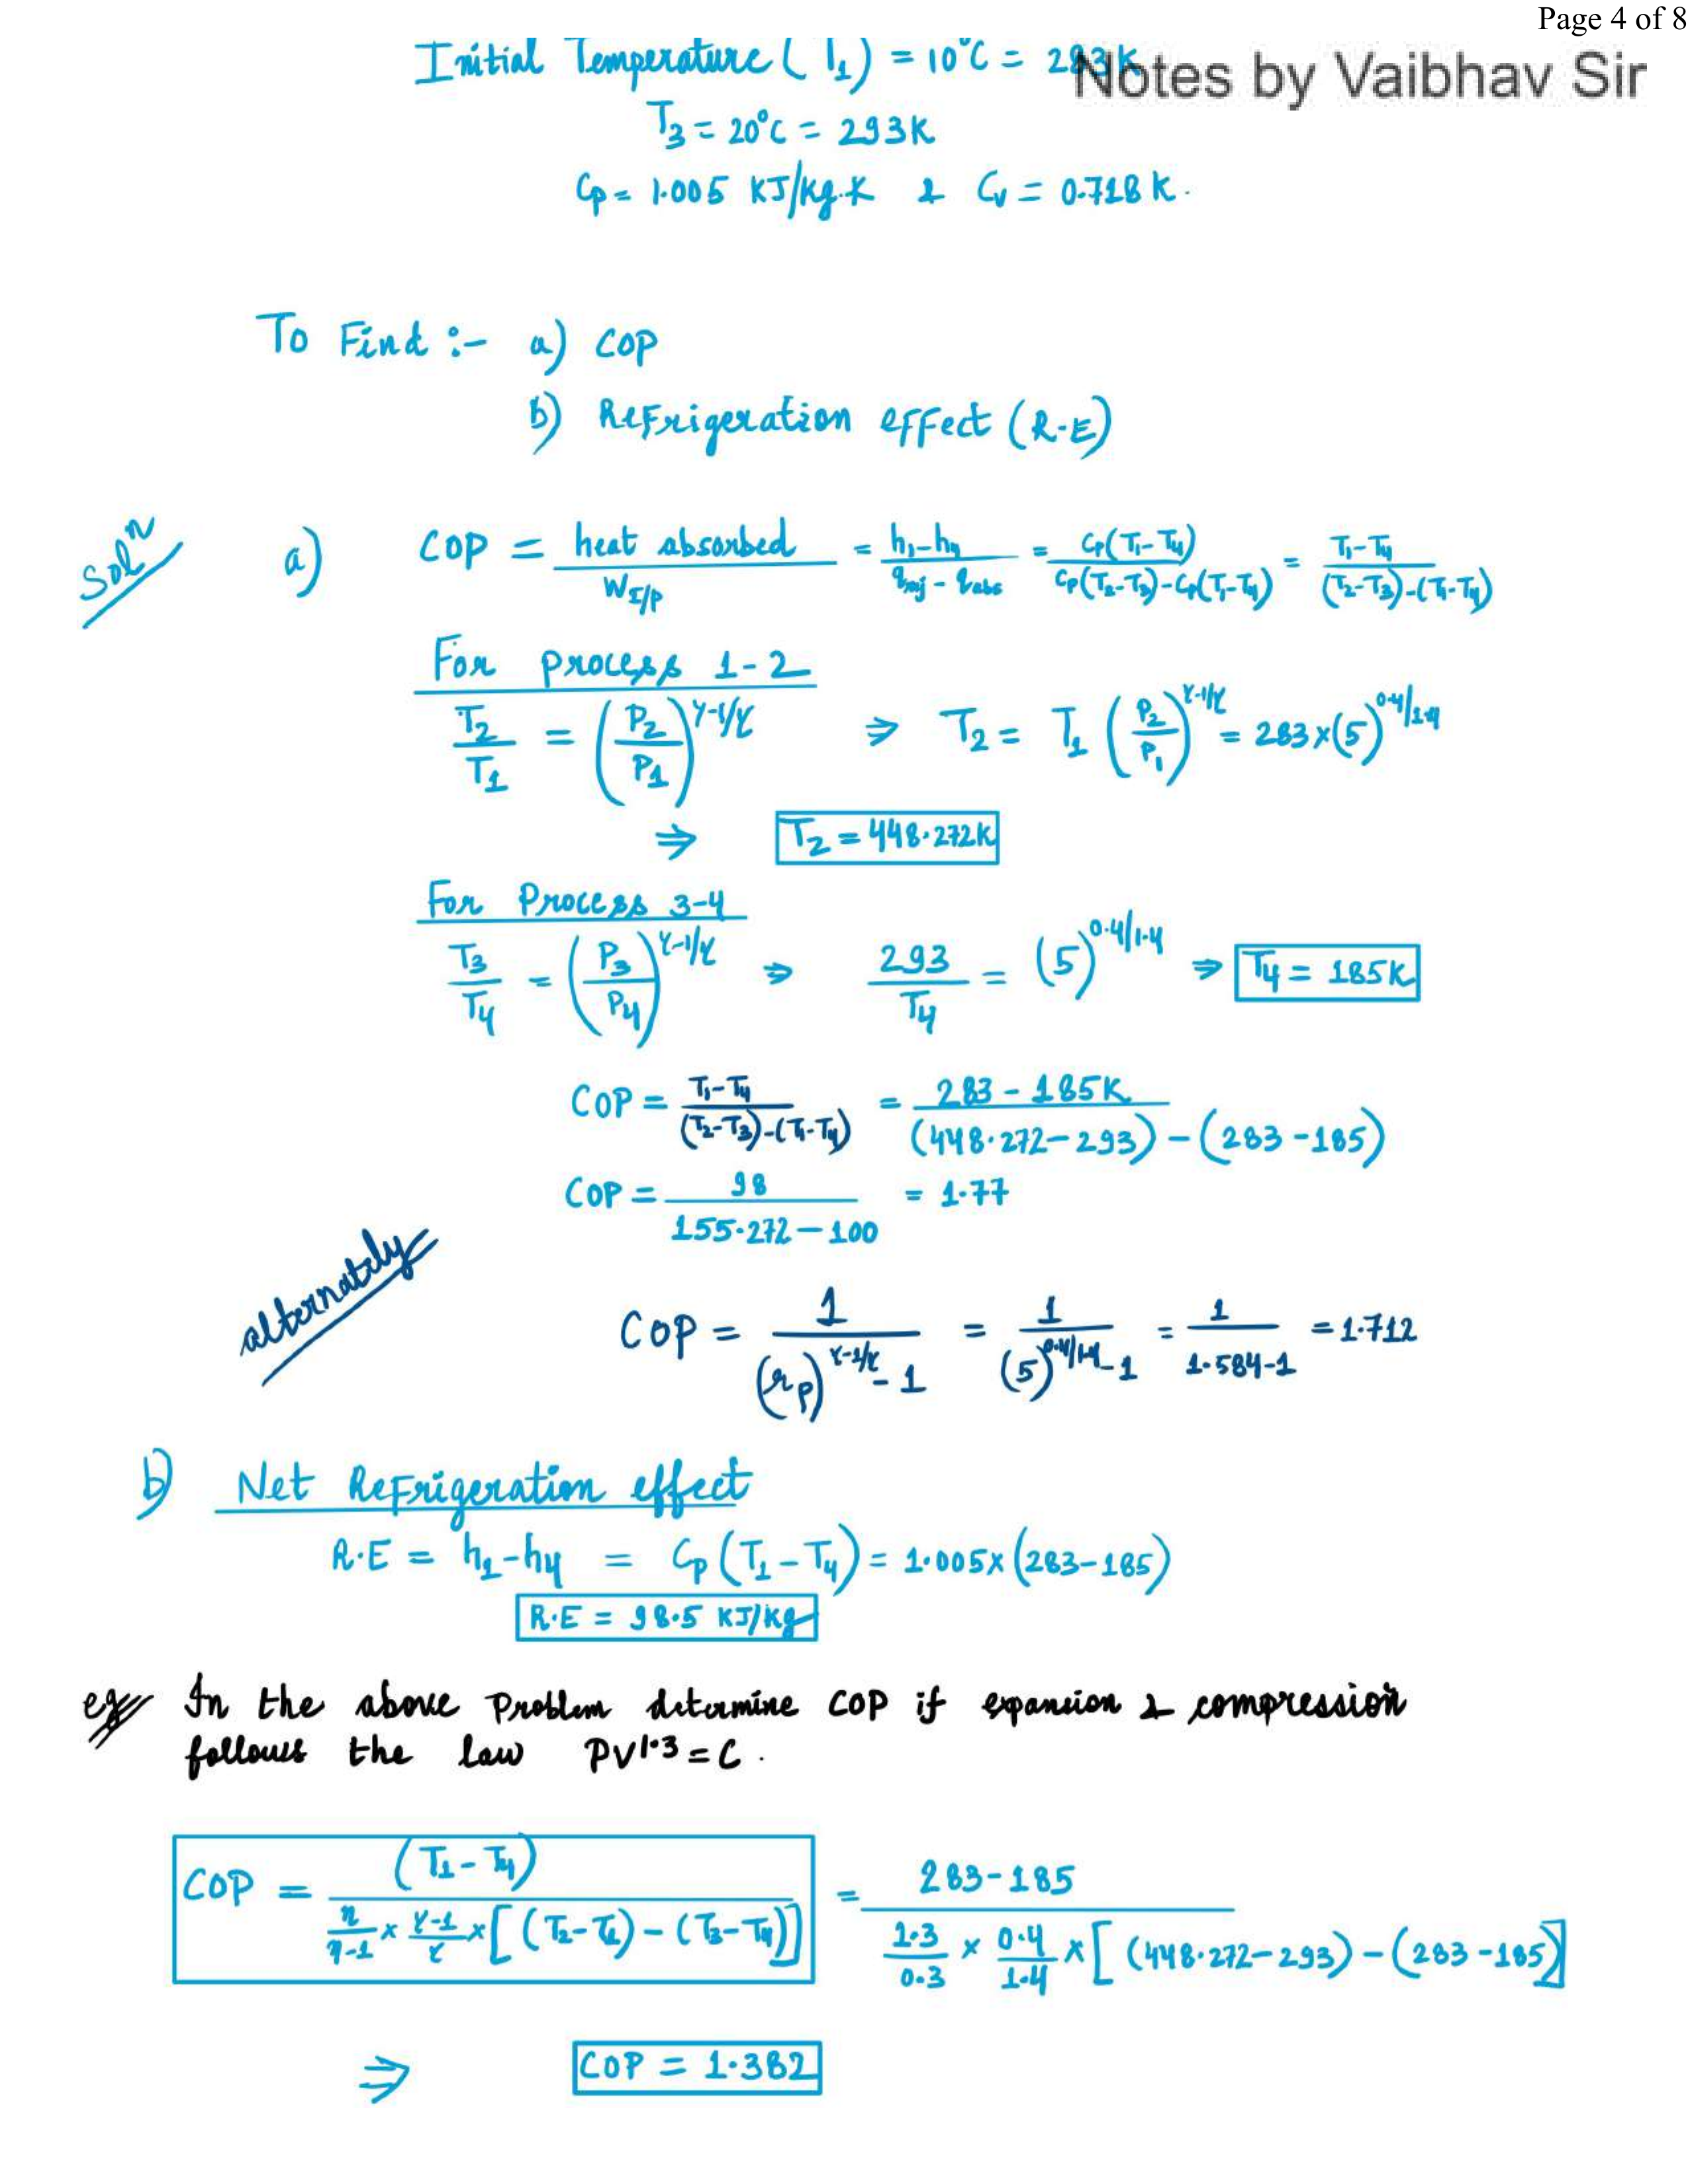 Page 4 of 8
Initial Temperature (T₁) = 10°C = 283K
Notes by Vaibhav Sir
T₃ = 20°C = 293K
Cp = 1.005 KJ/kg.K & Cv = 0.718 K.
To Find :- a) COP
b) Refrigeration effect (R-E)
Solⁿ a) COP = heat absorbed / W_I/P = h₁-h₄ / q_rej - q_abs = Cp(T₁-T₄) / Cp(T₂-T₃)-Cp(T₁-T₄) = T₁-T₄ / (T₂-T₃)-(T₁-T₄)
For process 1-2
T₂/T₁ = (P₂/P₁)^γ-1/γ ⇒ T₂ = T₁ (P₂/P₁)^γ-1/γ = 283×(5)^0.4/1.4
⇒ T₂ = 448.272K
For Process 3-4
T₃/T₄ = (P₃/P₄)^γ-1/γ ⇒ 293/T₄ = (5)^0.4/1.4 ⇒ T₄ = 185K
COP = T₁-T₄ / (T₂-T₃)-(T₁-T₄) = 283 - 185K / (448.272-293) - (283-185)
COP = 98 / 155.272-100 = 1.77
alternately
COP = 1 / (rp)^γ-1/γ - 1 = 1 / (5)^0.4/1.4 - 1 = 1 / 1.584-1 = 1.712
b) Net Refrigeration effect
R.E = h₁-h₄ = Cp(T₁-T₄) = 1.005×(283-185)
R.E = 98.5 KJ/Kg
eg In the above Problem determine COP if expansion & compression
follows the law PV^1.3 = C.
COP = (T₁-T₄) / n/n-1 × γ-1/γ × [(T₂-T₁)-(T₃-T₄)] = 283-185 / 1.3/0.3 × 0.4/1.4 × [(448.272-293)-(283-185)]
⇒ COP = 1.382